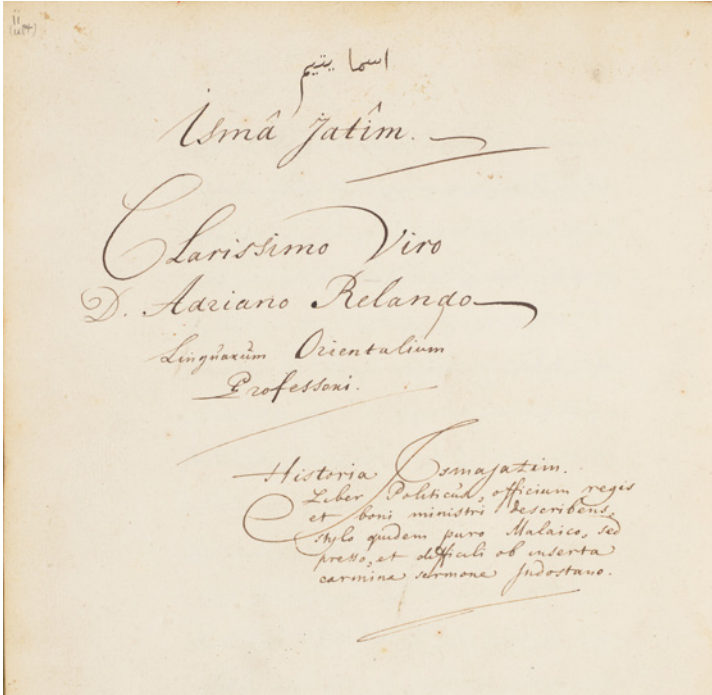 ii
اسما يتيم
Ismâ Jatîm.
Clarissimo Viro
D. Adriano Relando
Linguarum Orientalium
Professori.
Historia Ismajatim.
Liber Politicus, officium regis
et boni ministri describens,
stylo quidem puro Malaico, sed
presso, et difficili ob inserta
carmina sermone Indostano.